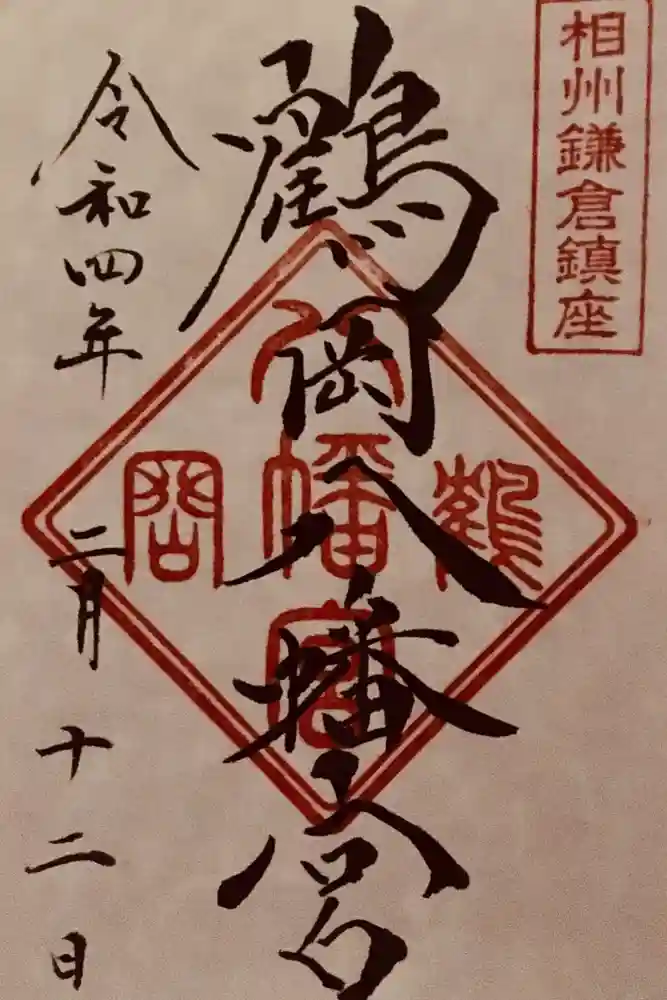 相州鎌倉鎮座
鶴岡八幡宮
鶴岡
八幡宮
令和四年
二月十二日